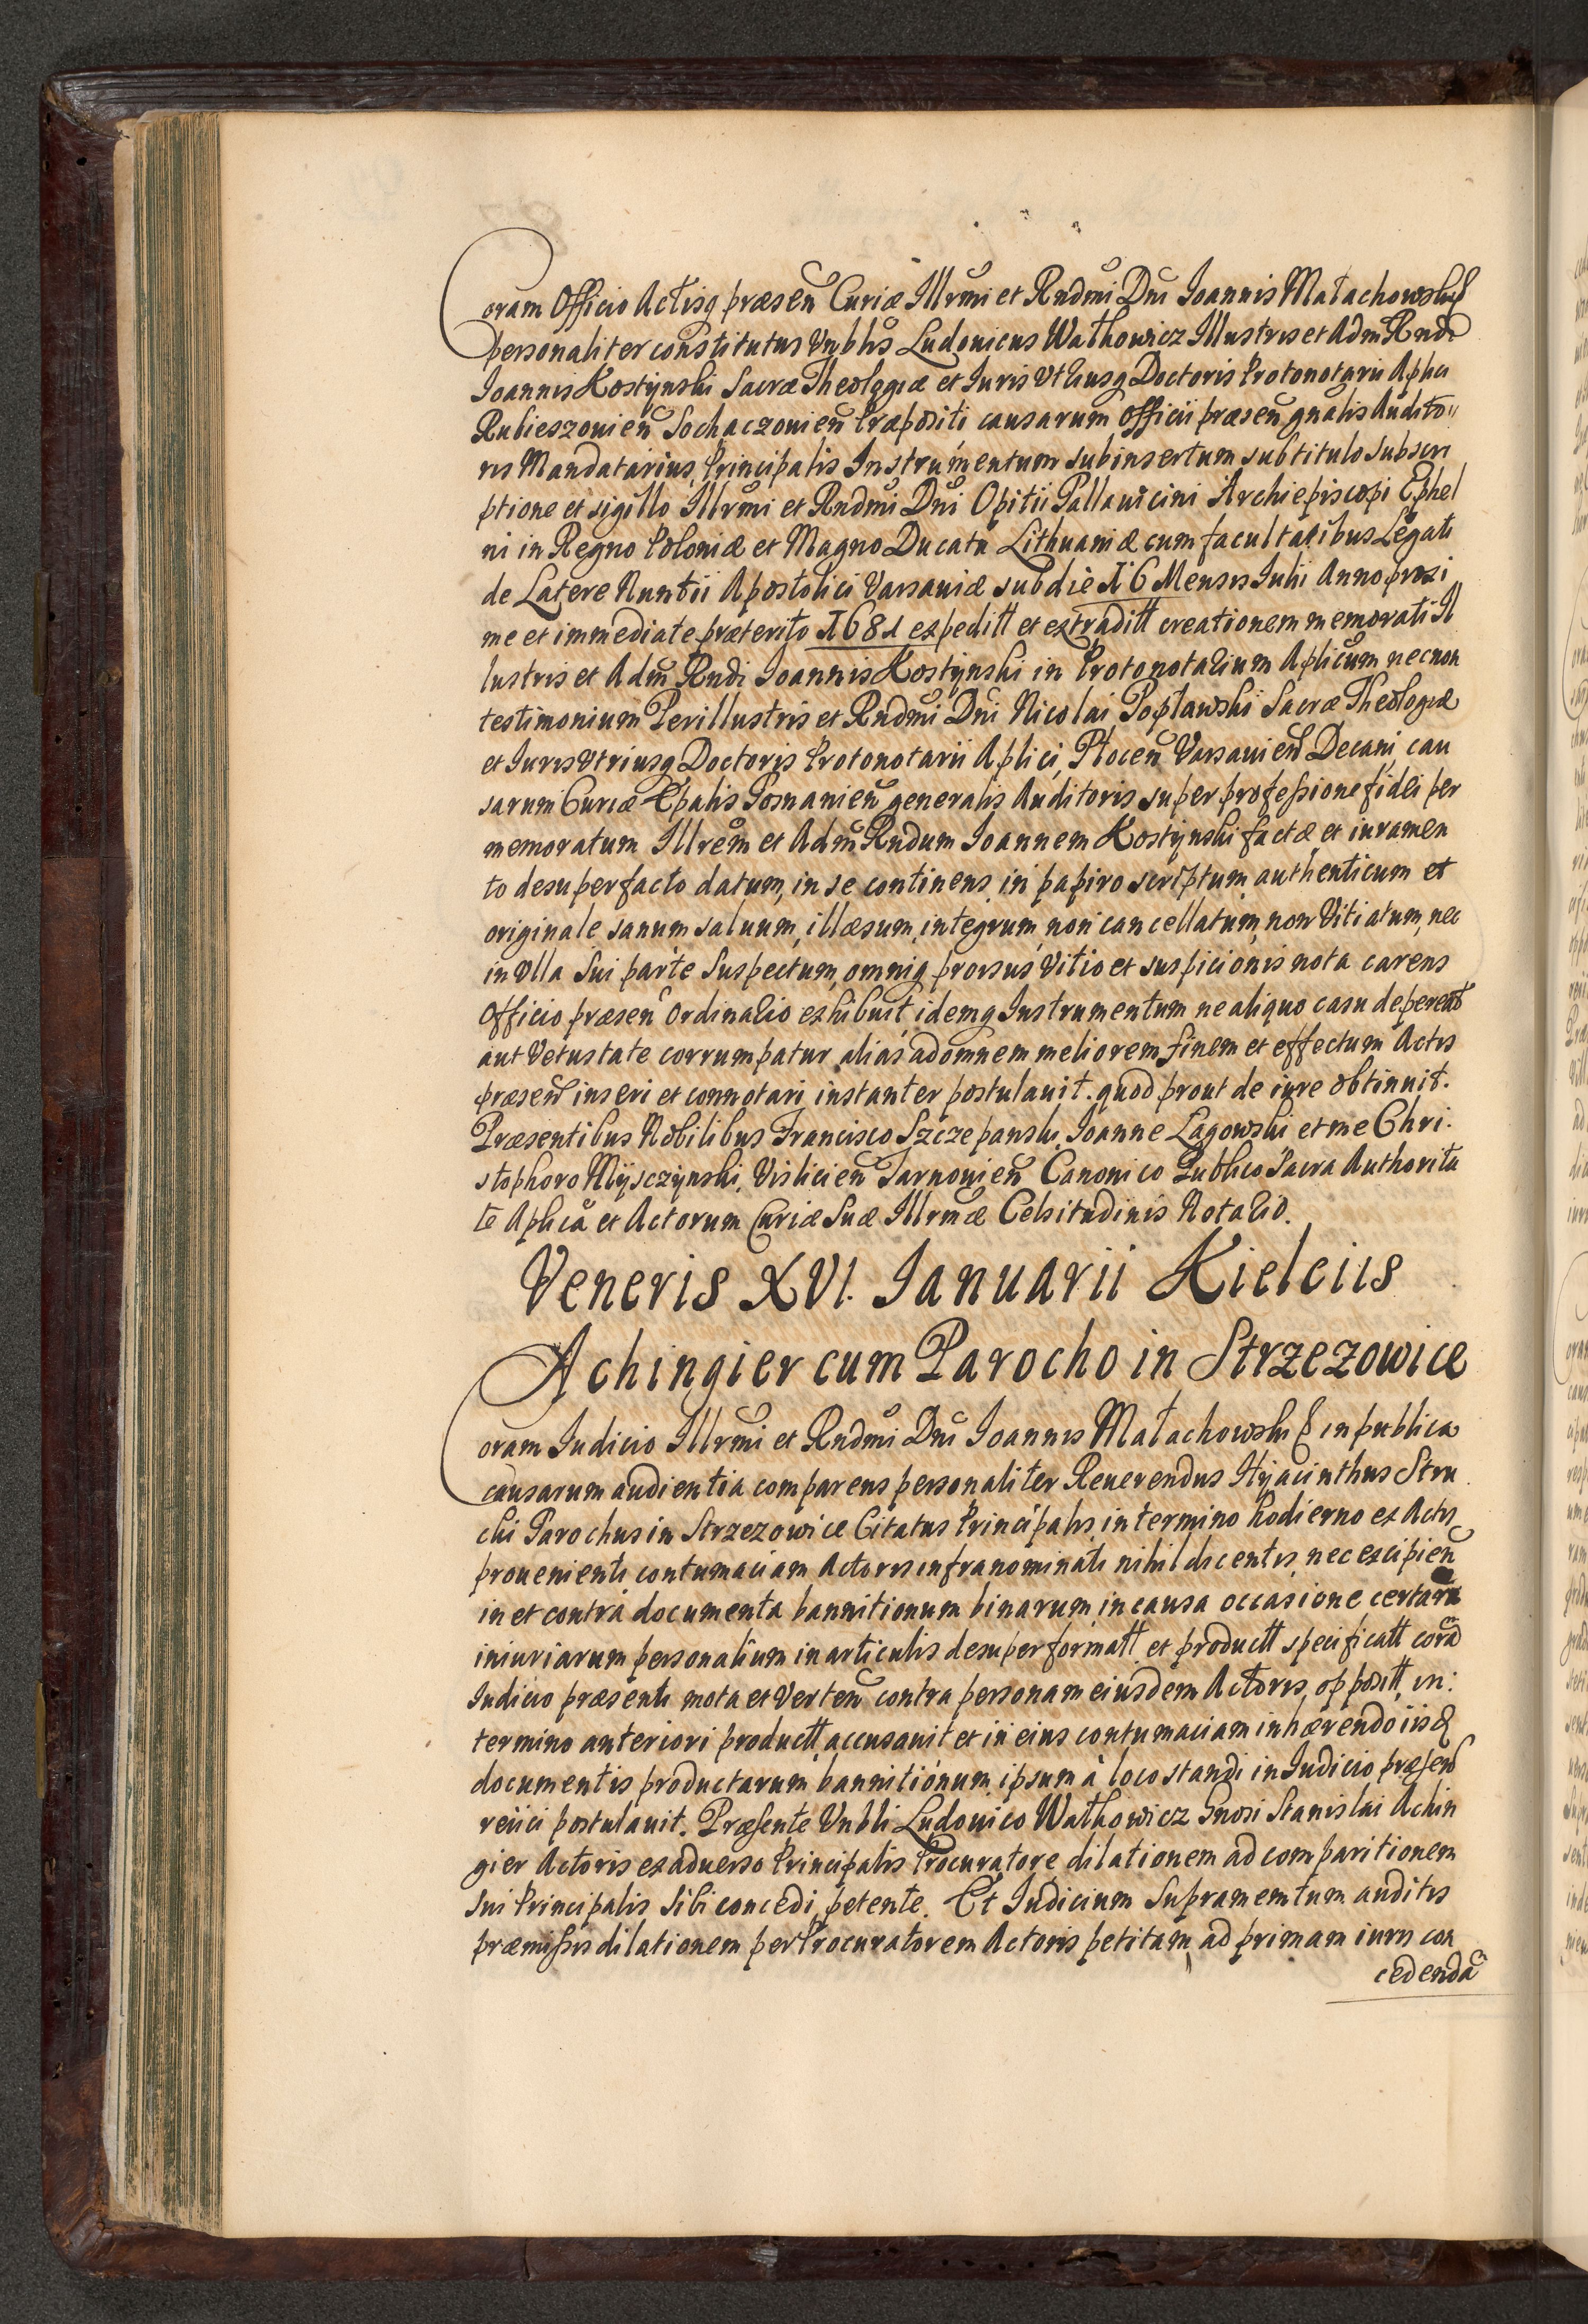 Coram Officio Actisq præsen Curiæ Illrmi et Rndmi Dni Joannis Małachowski &
personaliter constitutus Vnblis Ludouicus Wathowicz Illustris et Adm Rndi
Joannis Kostynski Sacræ Theologiæ et Juris Vtriusq Doctoris Protonotarii Aplici
Rubieszouien Sochaczouien Præpositi causarum officii præsen gnalis Audito"
ris Mandatarius, Principalis Instrumentum subinsertum sub titulo subscri
ptione et sigillo Illrmi et Rndmi Dni Opitii Pallauicini Archiepiscopi Ephe
ni in Regno Poloniæ et Magno Ducatu Lithuaniæ cum facultatibus Legati
de Latere Nuntii Apostolici Varsauiæ sub die 16 Mensis Julii Anno proxi
me et immediate præterito 1681 expeditt et extraditt creationem memorati Il
lustris et Adm Rndi Joannis Kostynski in Protonotarium Aplicum necnon
testimonium Perillustris et Rndmi Dni Nicolai Popławski Sacræ Theologiæ
et Juris Vtriusq Doctoris Protonotarii Aplici, Plocen Varsauien Decani, cau
sarum Curiæ Epalis Posnanien generalis Auditoris super professione fidei per
memoratum Illrem et Adm Rndum Joannem Kostynski factæ et iuramen
to desuper facto datum, in se continens, in papiro scriptum authenticum et
originale sanum saluum, illæsum, integrum, non cancellatum, non Vitiatum, nec
in Vlla Sui parte Suspectum, omniq prorsus Vitio et suspicionis nota carens
Officio præsen Ordinario exhibuit, idemq Instrumentum ne aliquo casu depereat
aut Vetustate corrumpatur, alias ad omnem meliorem finem et effectum Actis
præsen inseri et connotari instanter postulauit. quod prout de iure obtinuit.
Præsentibus Nobilibus Francisco Szczepanski, Joanne Łagowski et me Chri.
stophoro Mysczynski, Vislicien Tarnouien Canonico Publico Sacra Authorita
te Aplica et Actorum Curiæ Suæ Illrmæ Celsitudinis Notario.
Veneris XVI. Januarii Kielciis
Achingier cum Parocho in Strzezowice
Coram Judicio Illrmi et Rndmi Dni Joannis Małachowski & in publica
causarum audientia comparens personaliter Reuerendus Hyacinthus Stru
chi Parochus in Strzezowice Citatus Principalis in termino hodierno ex Actis
prouenienti contumaciam Actoris infranominati nihil dicentis, nec excipien
in et contra documenta bannitionum binarum in causa occasione certaru
iniuriarum personalium in articulis desuper formatt et productt specificatt cora
Judicio præsenti mota et Verten contra personam eiusdem Actoris, oppositt, in:
termino anteriori productt, accusauit et in eius contumaciam inhærendo iis&
documentis productarum bannitionum ipsum à loco standi in Judicio præsen
reiici postulauit. Præsente Vnbli Ludouico Wathowicz Gnosi Stanislai Achin
gier Actoris ex aduerso Principalis Procuratore dilationem ad comparitionem
Sui Principalis Sibi concedi, petente. Et Judicium Supramemtum auditis
præmissis dilationem per Procuratorem Actoris petitam, ad primam iuris con
cedenda